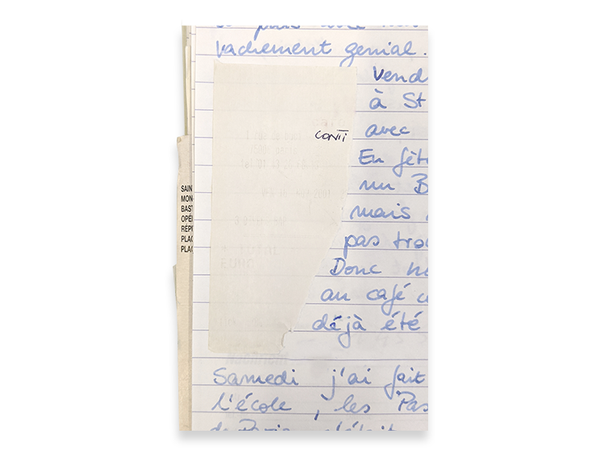 vachement genial.
Vend
à St
CONTI avec
En fêt
un B
mais
pas tro
Donc n
au café
déjà été
Samedi j'ai fait
l'école, les Pas
SAIN
MON
BAST
OPÉ
RÉPU
PLAC
PLAC